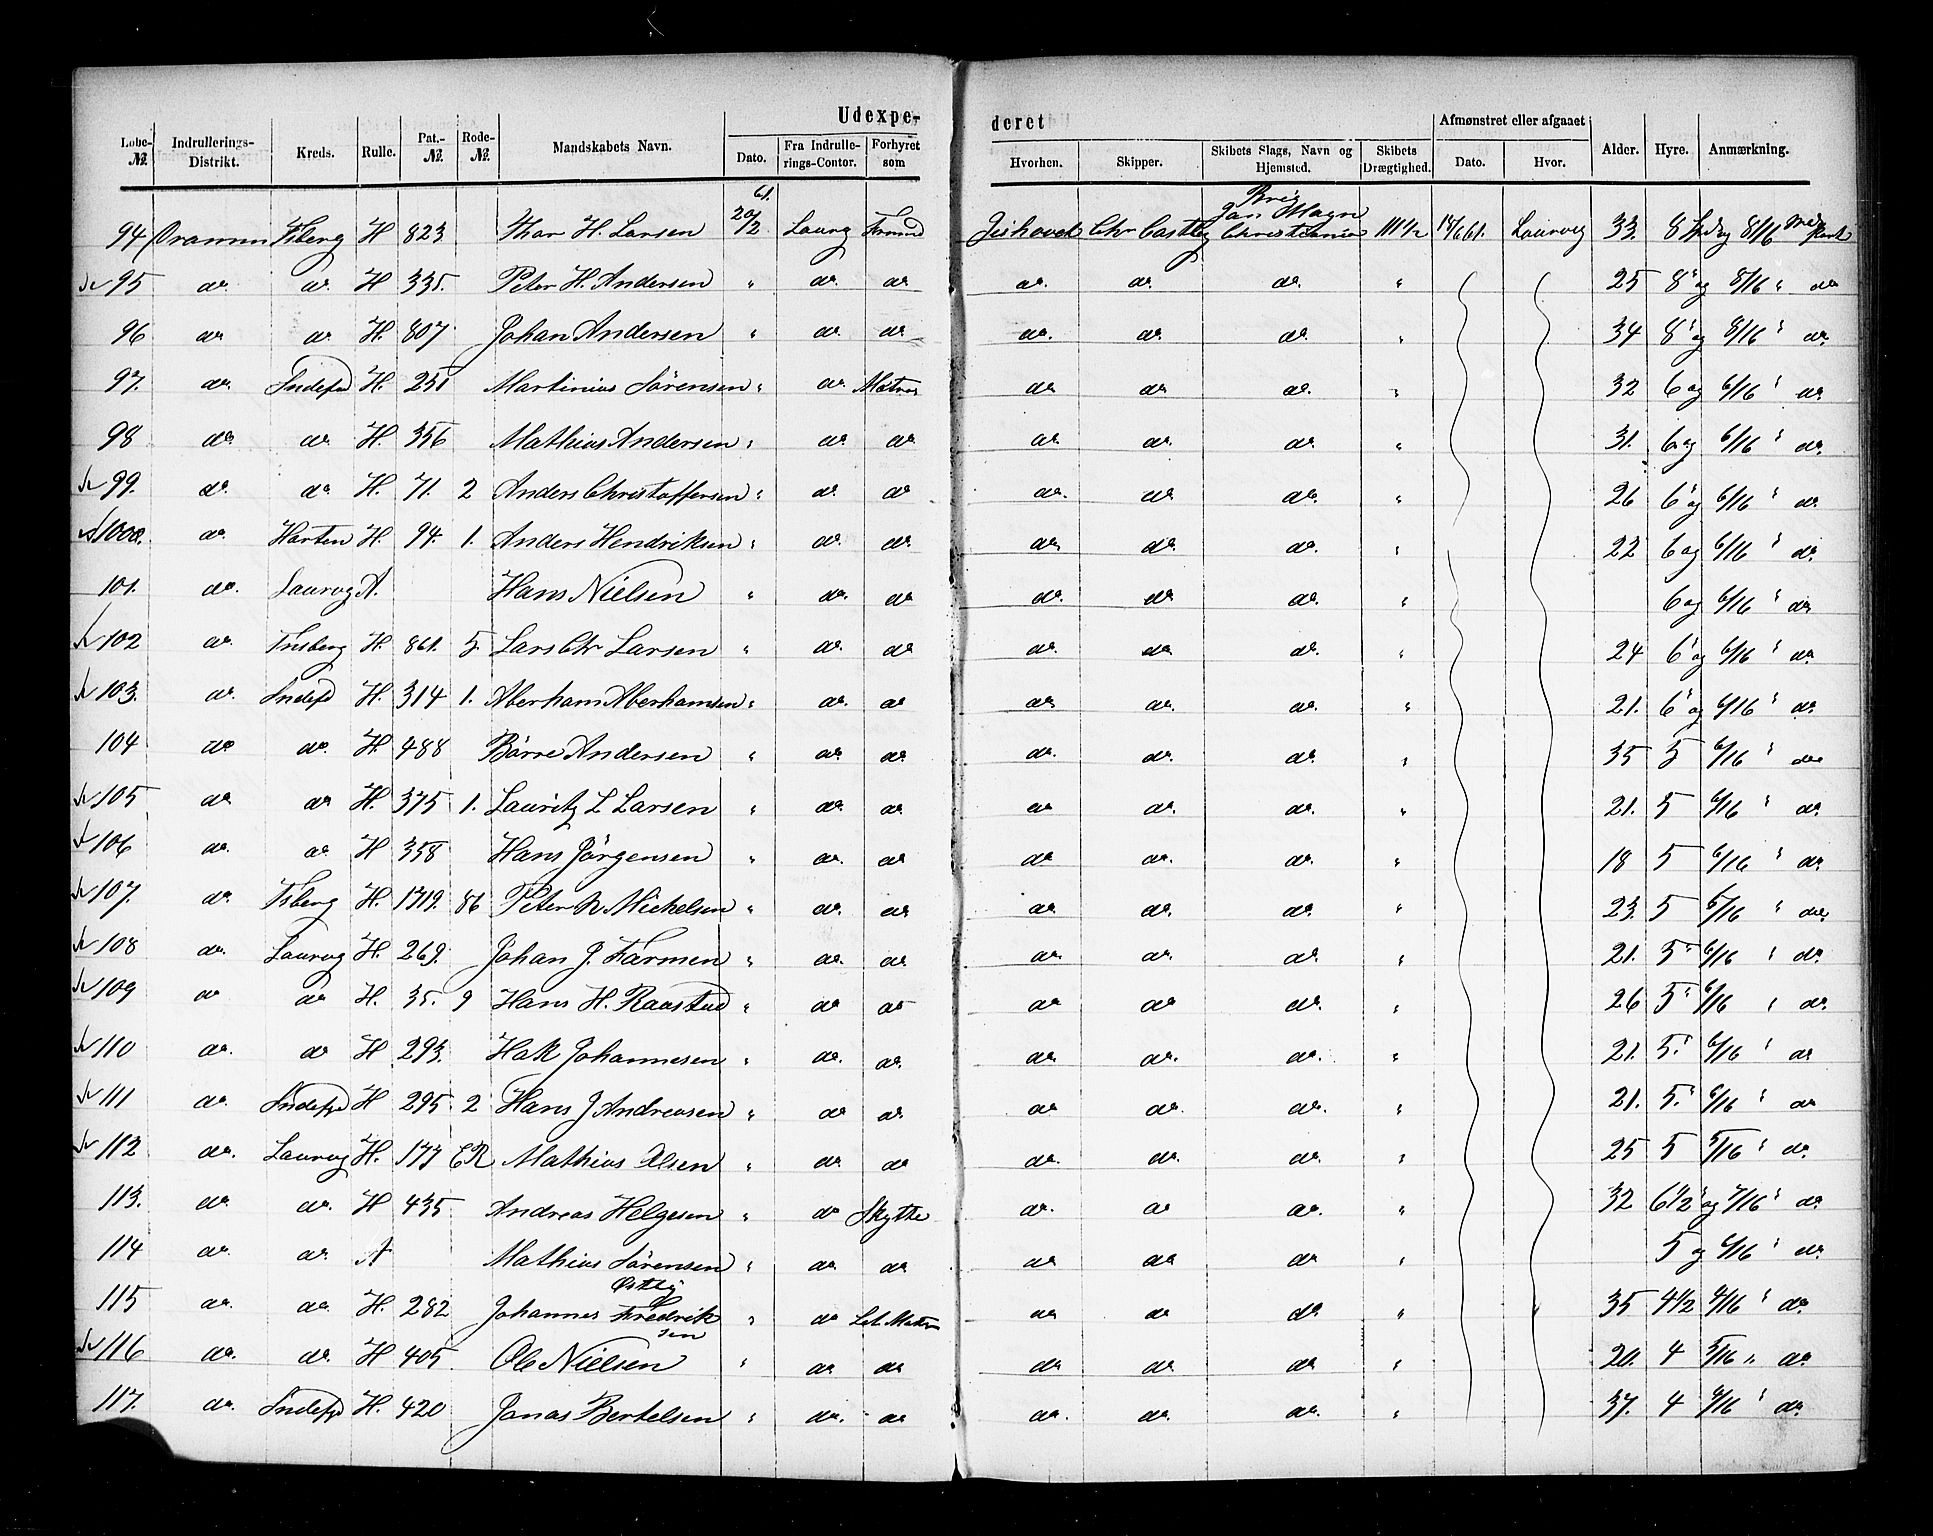 Udexpe- deret
Løbe-№. Indrullerings-Distrikt. Kreds. Rulle. Pat.-№. Rode-№. Mandskabets Navn. Dato. Fra Indrullerings-Contor. Forhyret som Hvorhen. Skipper. Skibets Slags, Navn og Hjemsted. Skibets Drægtighed. Afmønstret eller afgaaet Dato. Hvor. Alder. Hyre. Anmærkning.
94 Drammen Tsberg H 823 Thor H. Larsen 20/2 61. Laurv Tømmd Ishavet Chr Castb Brig Jan Mayn Christiania 111½ 14/6 61. Laurvig 33. 8 8/16
95 do. do. H 335. Peter H. Andersen " do. do. do. do. do. " 25 8 og 8/16 " do
96 do do. H. 807 Johan Andersen " do. do do. do. do. " 34 8 og 8/16 " do.
97. do. Sndefd H. 251 Martinius Sørensen " do. Matros do do do. " 32 6 og 6/16 " do.
98 do do. H. 356 Mathias Andersen " do. do do. do. do. " 31. 6 og 6/16 " do.
99. do. do H. 71. 2 Anders Christoffersen " do. do do. do do. " 26 6 og 6/16 " do.
1000. do. Harten H. 94. 1. Anders Hendriksen " do. do. do. do. do. " 22 6 og 6/16 " do.
101. do. Laurvg A. Hans Nielsen " do. do do. do do. " 6 og 6/16 " do
102 do. Tnsberg H. 861. 5. Lars Chr Larsen " do. do do. do do. " 24 6 og 6/16 " do.
103. do. Sndefd H. 314 1. Aberham Aberhamsen " do. do do. do. do. " 21. 6 og 6/16 " do.
104 do do. H. 488 Børre Andersen " do. do. do. do. do. " 35 5 6/16 " do
105 do do H. 375 1. Lauritz L Larsen " do. do. do do. do. " 21. 5 6/16 " do.
106 do. do H 358 Hans Jørgensen " do. do do do. do. " 18 5 6/16 " do.
107. do Tsberg H. 1719. 86 Peter N. Mickelsen " do. do do do. do. " 23. 5 6/16 " do.
108 do. Laurvg H. 269. Johan J. Farmen " do. do. do. do. do. " 21. 5 6/16 " do.
109 do do H. 35. 9 Hans H. Raastad " do do do do do. " 26 5 6/16 " do.
110 do. do H 293. Hak Johannesen " do. do. do do. do. " 21. 5. 6/16 " do
111 do. Sndefjd H 295 2 Hans J Andreasen " do do do do. do. " 21. 5. 6/16 " do
112 do. Laurvg H. 177 ER Mathias Olsen " do do do. do. do. " 25 5 5/16 " do.
113. do do. H 435 Andreas Helgesen " do Skytte do. do do. " 32 6½ og 7/16 " do
114 do. do. A Mathias Sørensen Østby " do do do do do " 5 og 6/16 " do.
115 do. do. H. 282 Johannes Fredriksen " do Let Matr do do do " 35 4½ 6/16 " do.
116 do. do. H 405. Ole Nielsen " do do do do do " 20. 4 5/16 " do.
117. do. Sndefjd H. 420 Jonas Bertelsen " do. do do. do. do. " 37. 4 6/16 " do.